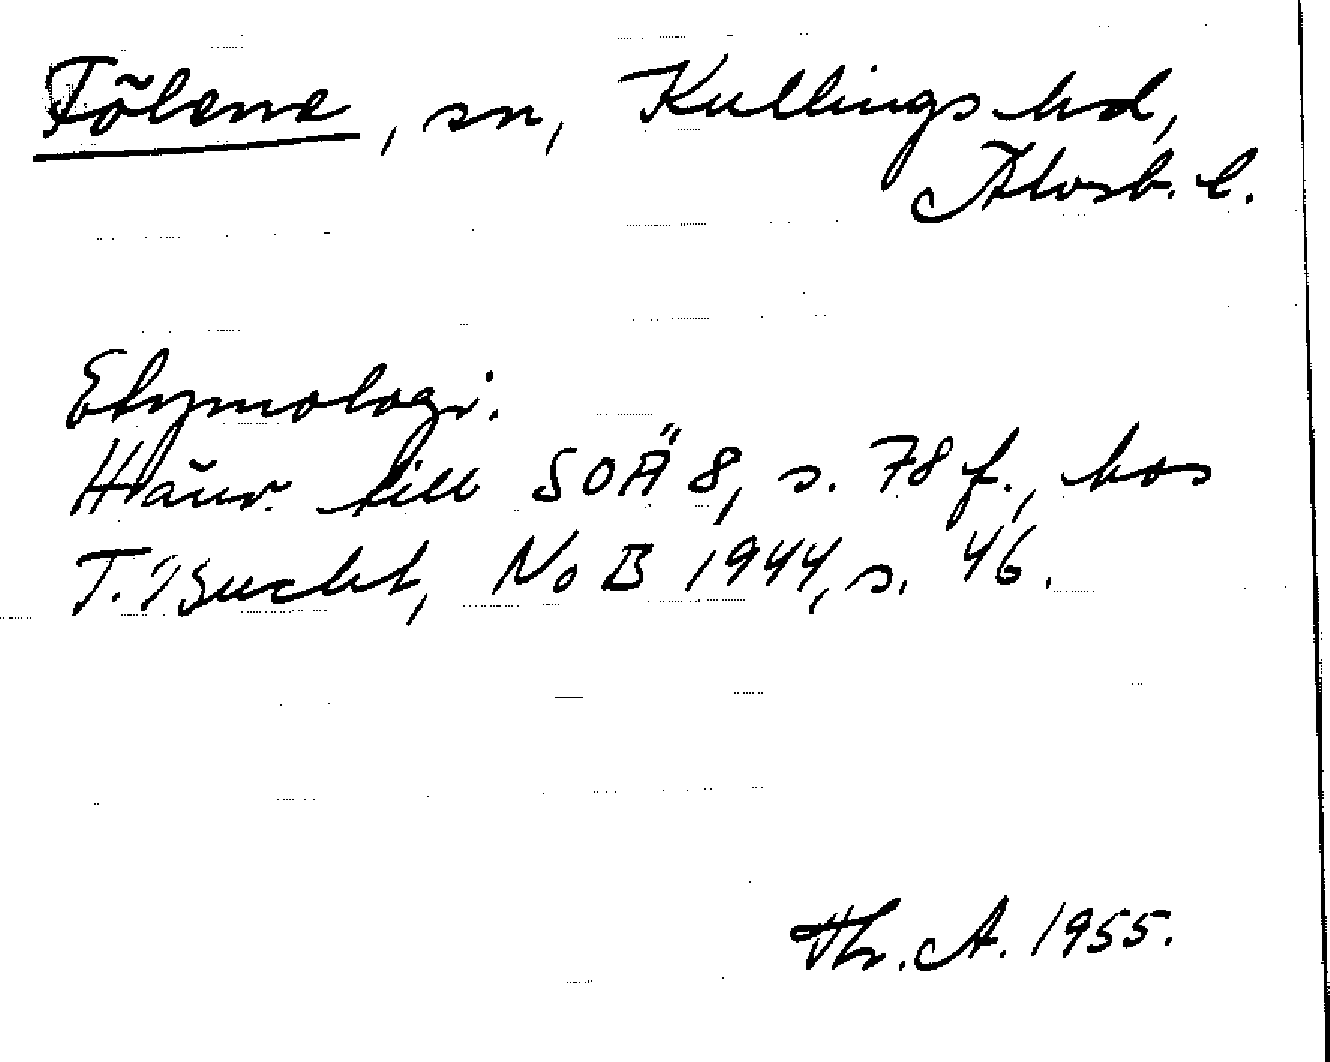 Fölene, sn, Kullings hd,
Älvsb. l.
Etymologi.
Hänv. till SOÄ 8, s. 78 f., hos
T. Bucht, NoB 1944, s. 46.
Thr. A. 1955.